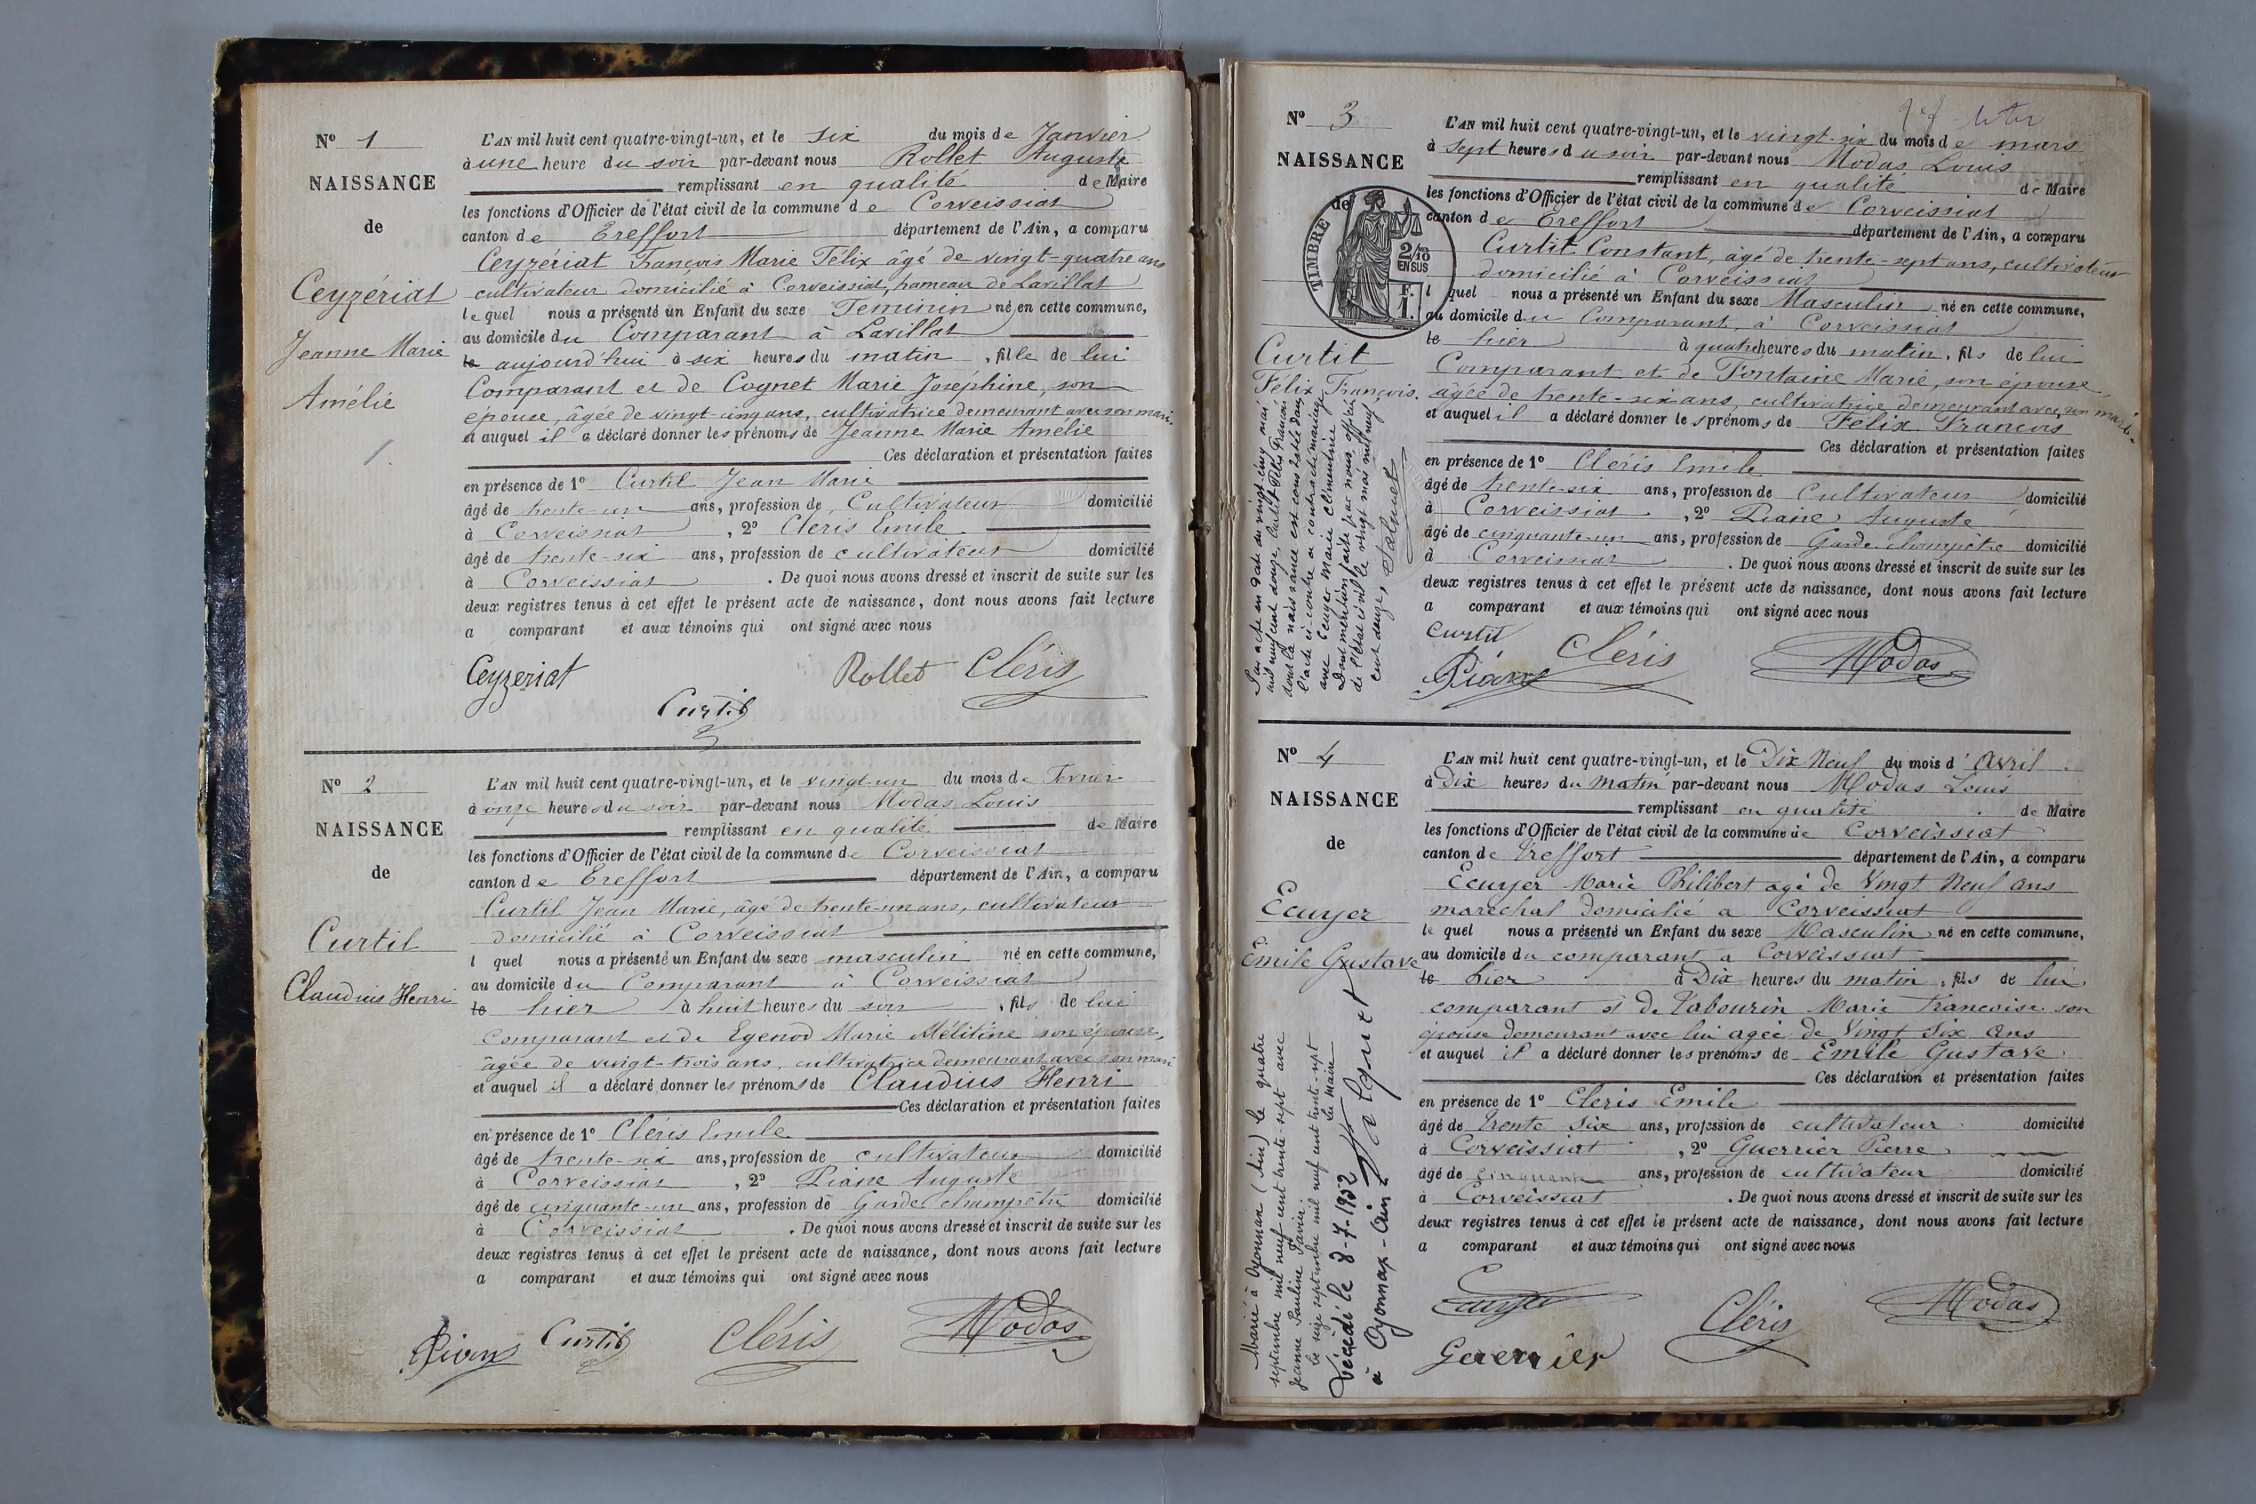 Nº 1
NAISSANCE
de
Ceyzériat
Jeanne Marie
Amélie
1.
L'AN mil huit cent quatre-vingt-un, et le six du mois de Janvier
à une heure du soir par-devant nous Rollet Auguste
remplissant en qualité de Maire
les fonctions d'Officier de l'état civil de la commune de Corveissiat
canton de Treffort département de l'Ain, a comparu
Ceyzériat François Marie Félix âgé de vingt-quatre ans
cultivateur domicilié à Corveissiat, hameau de Lavillat
lequel nous a présenté un Enfant du sexe Féminin né en cette commune,
au domicile du Comparant à Lavillat
le aujourd'hui à six heures du matin, fille de lui
Comparant et de Cognet Marie Joséphine, son
épouse, âgée de vingt-cinq ans, cultivatrice demeurant avec son mari.
et auquel il a déclaré donner les prénoms de Jeanne Marie Amélie
Ces déclaration et présentation faites
en présence de 1º Curtil Jean Marie
âgé de trente-un ans, profession de Cultivateur domicilié
à Corveissiat, 2º Cléris Emile
âgé de trente-six ans, profession de cultivateur domicilié
à Corveissiat. De quoi nous avons dressé et inscrit de suite sur les
deux registres tenus à cet effet le présent acte de naissance, dont nous avons fait lecture
a comparant et aux témoins qui ont signé avec nous
Ceyzeriat Rollet Cléris
Curtil
Nº 2
NAISSANCE
de
Curtil
Claudius Henri
L'AN mil huit cent quatre-vingt-un, et le vingt-un du mois de Février
à onze heures du soir par-devant nous Modas Louis
remplissant en qualité de Maire
les fonctions d'Officier de l'état civil de la commune de Corveissiat
canton de Treffort département de l'Ain, a comparu
Curtil Jean Marie, âgé de trente-un ans, cultivateur
domicilié à Corveissiat
l quel nous a présenté un Enfant du sexe masculin né en cette commune,
au domicile du Comparant à Corveissiat
le hier à huit heures du soir, fils de lui
comparant et de Egenod Marie Mélitine son épouse,
âgée de vingt-trois ans, cultivatrice demeurant avec son mari
et auquel il a déclaré donner les prénoms de Claudius Henri
Ces déclaration et présentation faites
en présence de 1º Cléris Emile
âgé de trente-six ans, profession de cultivateur domicilié
à Corveissiat, 2º Auguste
âgé de cinquante-un ans, profession de Garde champêtre domicilié
à Corveissiat. De quoi nous avons dressé et inscrit de suite sur les
deux registres tenus à cet effet le présent acte de naissance, dont nous avons fait lecture
a comparant et aux témoins qui ont signé avec nous
Curtil Cléris Modas
Nº 3
NAISSANCE
de
TIMBRE
2/10
EN SUS
F.
1.
Curtit
Félix François.
Par acte en date du vingt-cinq mai
mil neuf cent douze, Curtit Félix François
dont la naissance est constatée dans
l'acte ci-contre a contracté mariage
avec Ecuyer Marie Clémentine
Dont mention faite par nous, officier
de l'état civil le vingt mai mil neuf
cent douze, Salquet
L'AN mil huit cent quatre-vingt-un, et le vingt-six du mois de mars
à sept heures du soir par-devant nous Modas Louis
remplissant en qualité de Maire
les fonctions d'Officier de l'état civil de la commune de Corveissiat
canton de Treffort département de l'Ain, a comparu
Curtit Constant, âgé de trente-sept ans, cultivateur
domicilié à Corveissiat
l quel nous a présenté un Enfant du sexe Masculin né en cette commune,
au domicile du Comparant, à Corveissiat
le hier à quatre heures du matin, fils de lui
Comparant et de Fontaine Marie, son épouse
âgée de trente-six ans, cultivatrice demeurant avec son mari
et auquel il a déclaré donner les prénoms de Félix François
Ces déclaration et présentation faites
en présence de 1º Cléris Emile
âgé de trente-six ans, profession de Cultivateur domicilié
à Corveissiat, 2º Auguste
âgé de cinquante-un ans, profession de Garde champêtre domicilié
à Corveissiat. De quoi nous avons dressé et inscrit de suite sur les
deux registres tenus à cet effet le présent acte de naissance, dont nous avons fait lecture
a comparant et aux témoins qui ont signé avec nous
Curtit Cléris Modas
Nº 4
NAISSANCE
de
Ecuyer
Emile Gustave
Marié à Oyonnax (Ain) le quatre
septembre mil neuf cent trente-sept avec
Jeanne Pauline
le seize septembre mil neuf cent trente-sept
Le maire
Salquet
Décédé le 8-7-1952
à Oyonnax-Ain
L'AN mil huit cent quatre-vingt-un, et le Dix Neuf du mois d'Avril
à Dix heures du Matin par-devant nous Modas Louis
remplissant en qualité de Maire
les fonctions d'Officier de l'état civil de la commune de Corveissiat
canton de Treffort département de l'Ain, a comparu
Ecuyer Marie Philibert agé de Vingt Neuf ans
marechal domicilié a Corveissiat
le quel nous a présenté un Enfant du sexe Masculin né en cette commune,
au domicile du comparant a Corveissiat
le hier à Dix heures du matin, fils de lui
comparant et de Tabourin Marie Francoise son
épouse demeurant avec lui agée de Vingt Six ans
et auquel il a déclaré donner les prénoms de Emile Gustave.
Ces déclaration et présentation faites
en présence de 1º Cleris Emile
âgé de trente Six ans, profession de cultivateur domicilié
à Corveissiat, 2º Guerrier Pierre
âgé de cinquante ans, profession de cultivateur domicilié
à Corveissiat. De quoi nous avons dressé et inscrit de suite sur les
deux registres tenus à cet effet le présent acte de naissance, dont nous avons fait lecture
a comparant et aux témoins qui ont signé avec nous
Ecuyer Cléris Modas
Guerrier